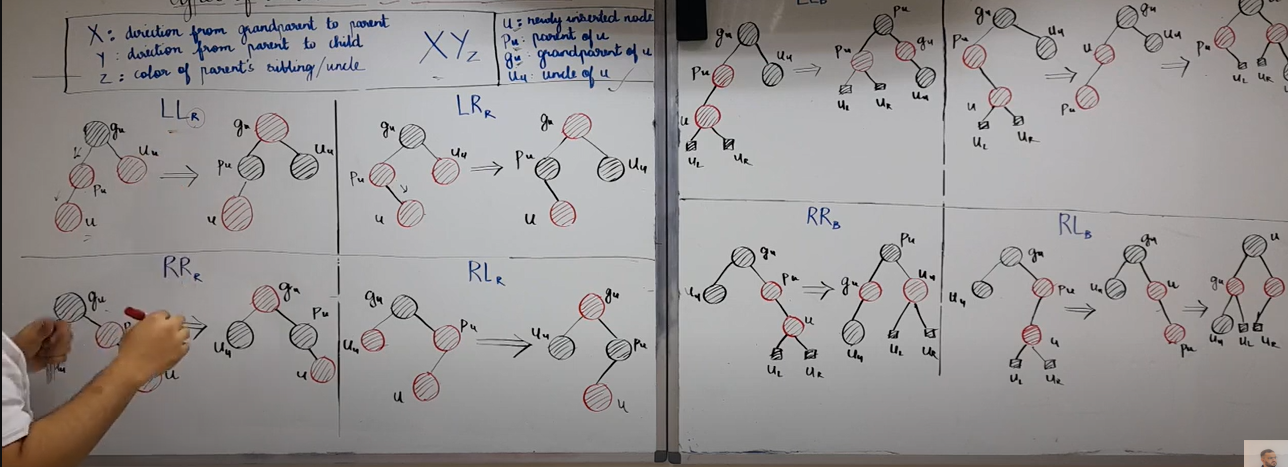 X: direction from grandparent to parent
Y: direction from parent to child
Z: color of parent's sibling/uncle
XYz
u: newly inserted node
Pu: parent of u
gu: grandparent of u
Uu: uncle of u
LLR
gu
Uu
Pu
u
gu
Pu
Uu
u
LRR
gu
Pu
Uu
u
gu
Pu
Uu
u
RRR
gu
u
gu
Uu
Pu
u
RLR
gu
Uu
Pu
u
gu
Uu
Pu
u
gu
Pu
Uu
u
UL
UR
Pu
Pu
gu
UL
UR
Uu
gu
Pu
Uu
u
UL
UR
gu
u
Uu
Pu
Pu
UL
UR
RRB
gu
Uu
Pu
u
UL
UR
Pu
gu
Uu
Uu
UL
UR
RLB
gu
Uu
Pu
u
UL
UR
gu
Uu
u
Pu
u
gu
Pu
Uu
UL
UR